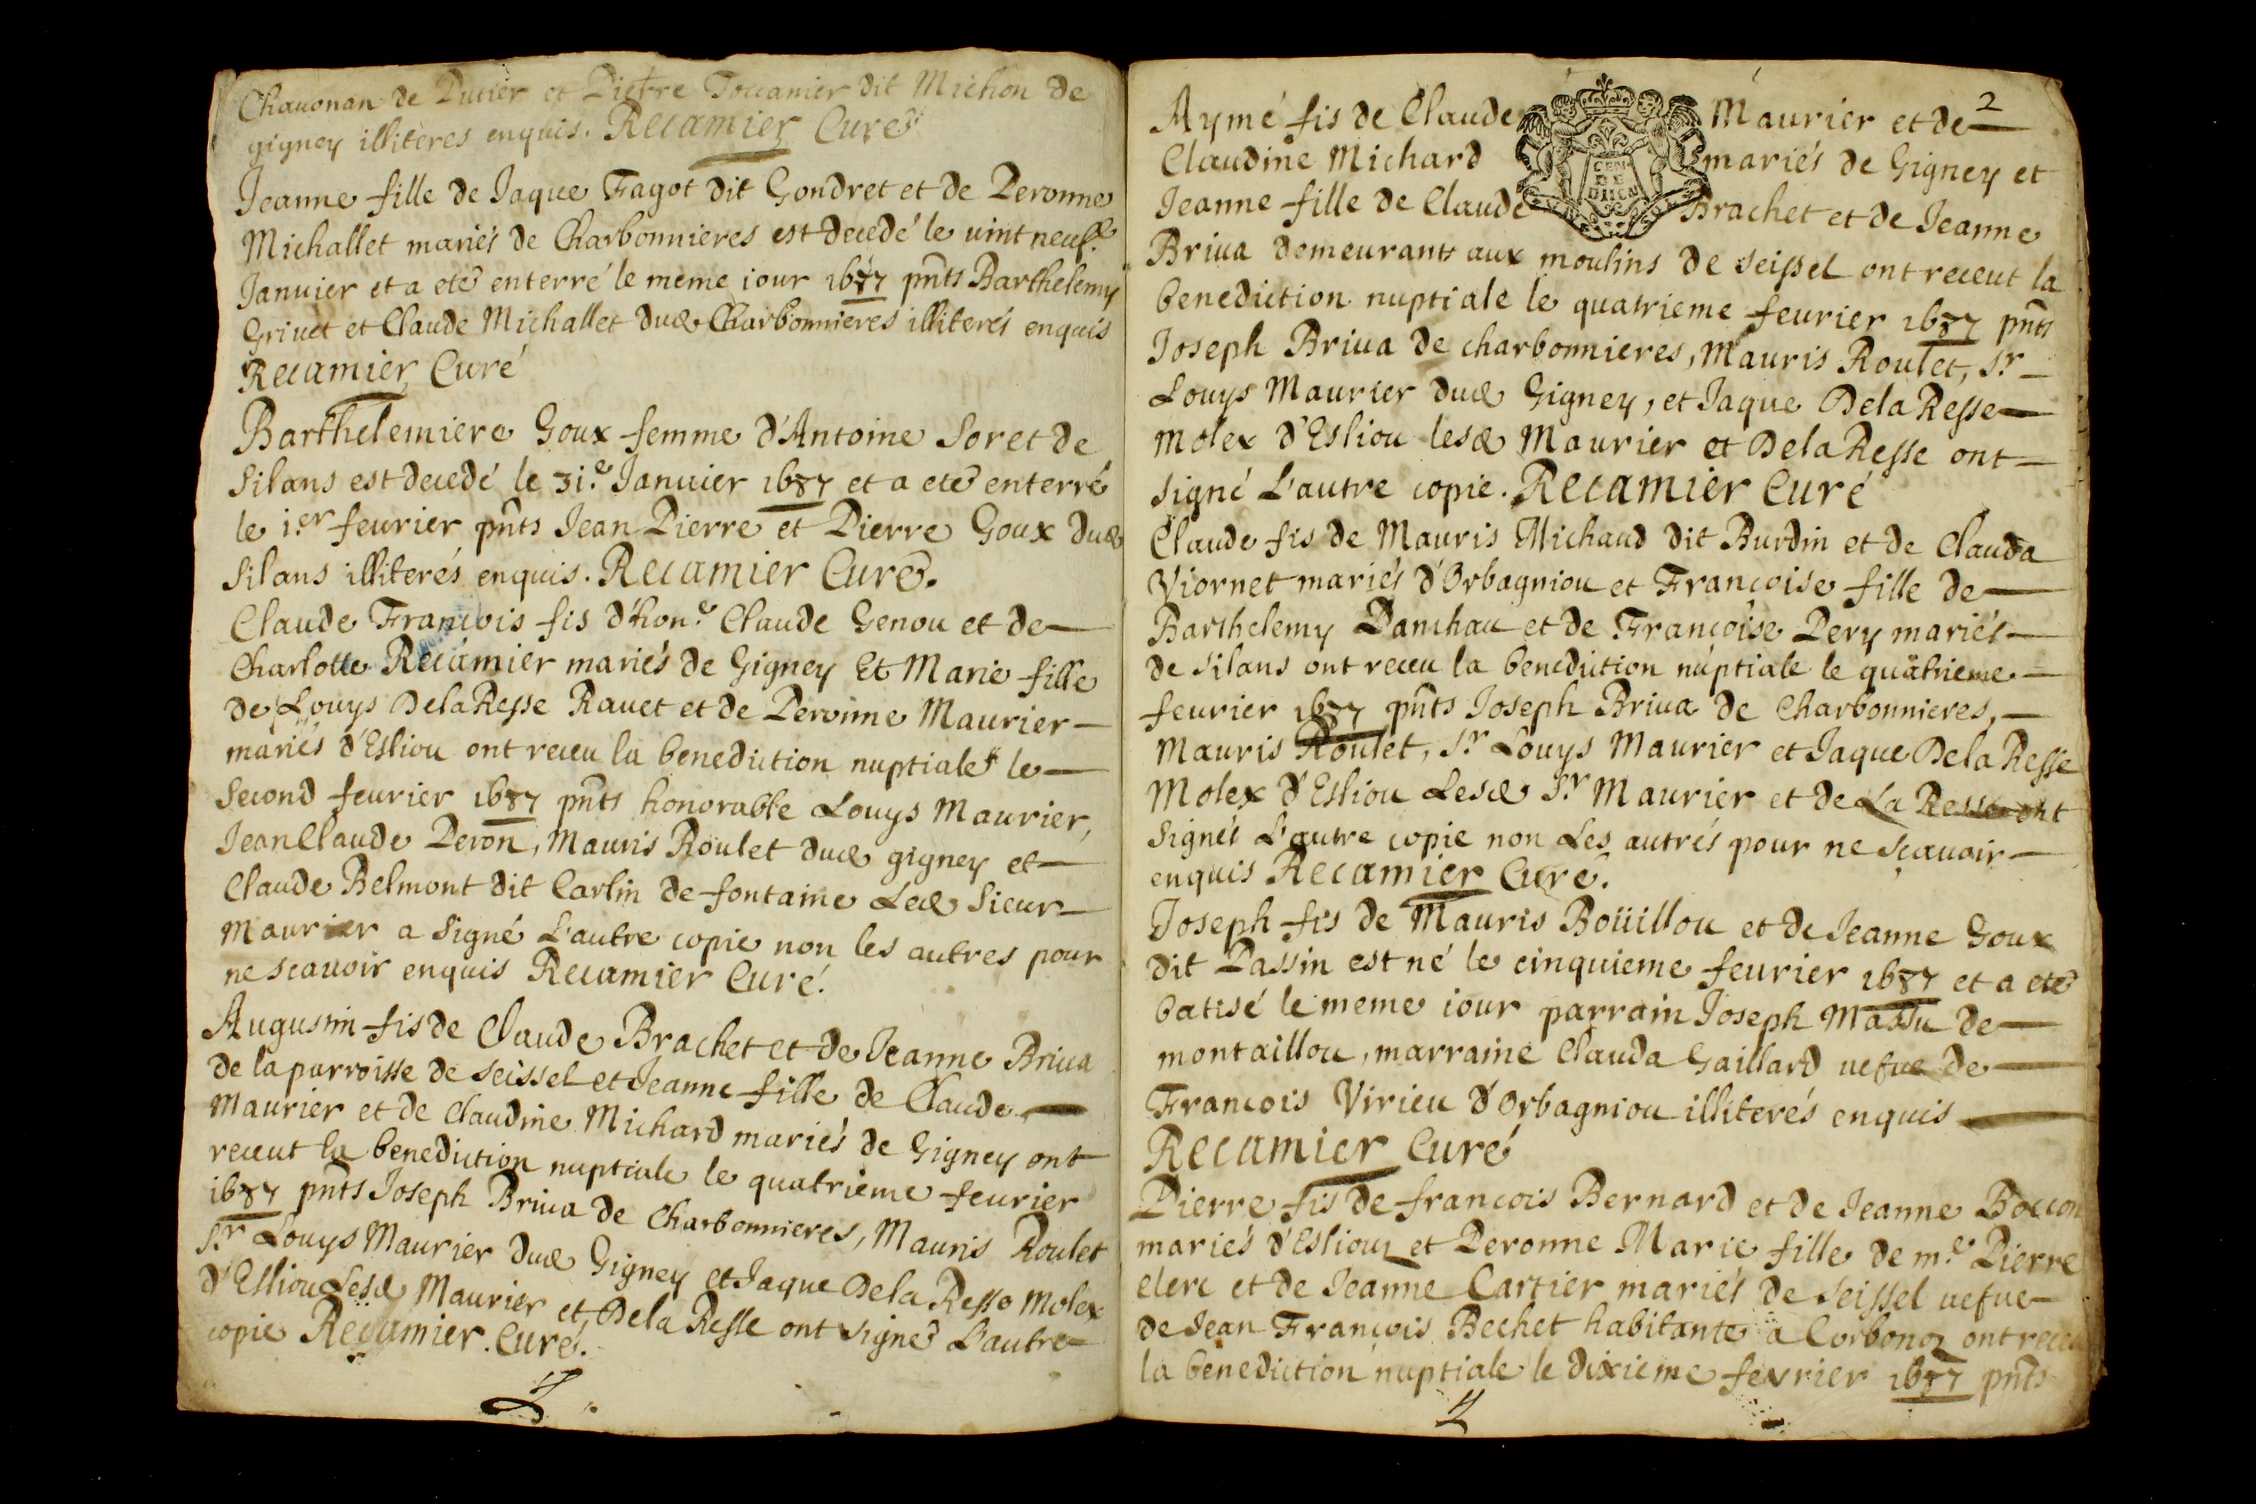 Chavonan de Putier et Pierre Toccanier dit Michon de
gigney illiterés enquis. Recamier Curé
Jeanne fille de Jaque Fagot dit Gondret et de Peronne
Michallet mariés de Charbonnieres est decedé le vint neuf.e
Janvier et a eté enterré le meme iour 1687 pñts Barthelemy
Grivet et Claude Michallet dud Charbonnieres illiterés enquis
Recamier Curé
Barthelemiere Goux femme d'Antoine Soret de
Silans est decedé le 31.e Janvier 1687 et a eté enterré
le 1.er fevrier pñts Jean Pierre et Pierre Goux dud
Silans illiterés enquis. Recamier Curé.
Claude François fis d'hon.e Claude Genou et de
Charlotte Recamier mariés de Gigney Et Marie fille
de Louys DelaResse Ravet et de Peronne Maurier
mariés d'Esliou ont receu la benediction nuptiale le
Second fevrier 1687 pñts honorable Louys Maurier,
JeanClaude Peron, Mauris Roulet dud gigney et
Claude Belmont dit Carlin de fontaine Led Sieur
Maurier a Signé L'autre copie non les autres pour
ne scavoir enquis Recamier Curé.
Augustin fis de Claude Brachet et de Jeanne Briva
de la parroisse de Seissel et Jeanne fille de Claude
Maurier et de Claudine Michard mariés de Gigney ont
receut la benediction nuptiale le quatrieme fevrier
1687 pñts Joseph Briva de Charbonnieres, Mauris Roulet
Sr Louys Maurier dud Gigney et Jaque DelaResse Molex
d'Esliou Lesd Maurier et DelaResse ont signé L'autre
copie Recamier Curé.
2
Aymé fis de Claude Maurier et de
Claudine Michard mariés de Gigney et
Jeanne fille de Claude Brachet et de Jeanne
Briva demeurants aux moulins de Seissel ont receut la
benediction nuptiale le quatrieme fevrier 1687 pñts
Joseph Briva de charbonnieres, Mauris Roulet, Sr
Louys Maurier dud Gigney, et Jaque DelaResse
Molex d'Esliou lesd Maurier et DelaResse ont
signé L'autre copie. Recamier Curé
Claude fis de Mauris Michaud dit Burdin et de Clauda
Viornet mariés d'Orbagniou et Françoise fille de
Barthelemy Panchau et de Françoise Pery mariés
de Silans ont receu la benediction nuptiale le quatrieme
fevrier 1687 pñts Joseph Briva de Charbonnieres,
Mauris Roulet, Sr Louys Maurier et Jaque DelaResse
Molex d'Esliou Lesd Sr Maurier et de La Resse ont
Signés L'autre copie non Les autrés pour ne sçavoir
enquis Recamier Curé.
Joseph fis de Mauris Boüillou et de Jeanne Goux
dit Passin est né le cinquieme fevrier 1687 et a eté
batisé le meme iour parrain Joseph Massu de
montaillou, marraine Clauda Gaillard vefve de
François Virieu d'Orbagniou illiterés enquis
Recamier Curé
Pierre fis de françois Bernard et de Jeanne Boccon
mariés d'Esliouz et Peronne Marie fille de m.e Pierre
clerc et de Jeanne Cartier mariés de Seissel vefve
de Jean François Bechet habitante a Corbonoz ont receu
la benediction nuptiale le dixieme fevrier 1687 pñts